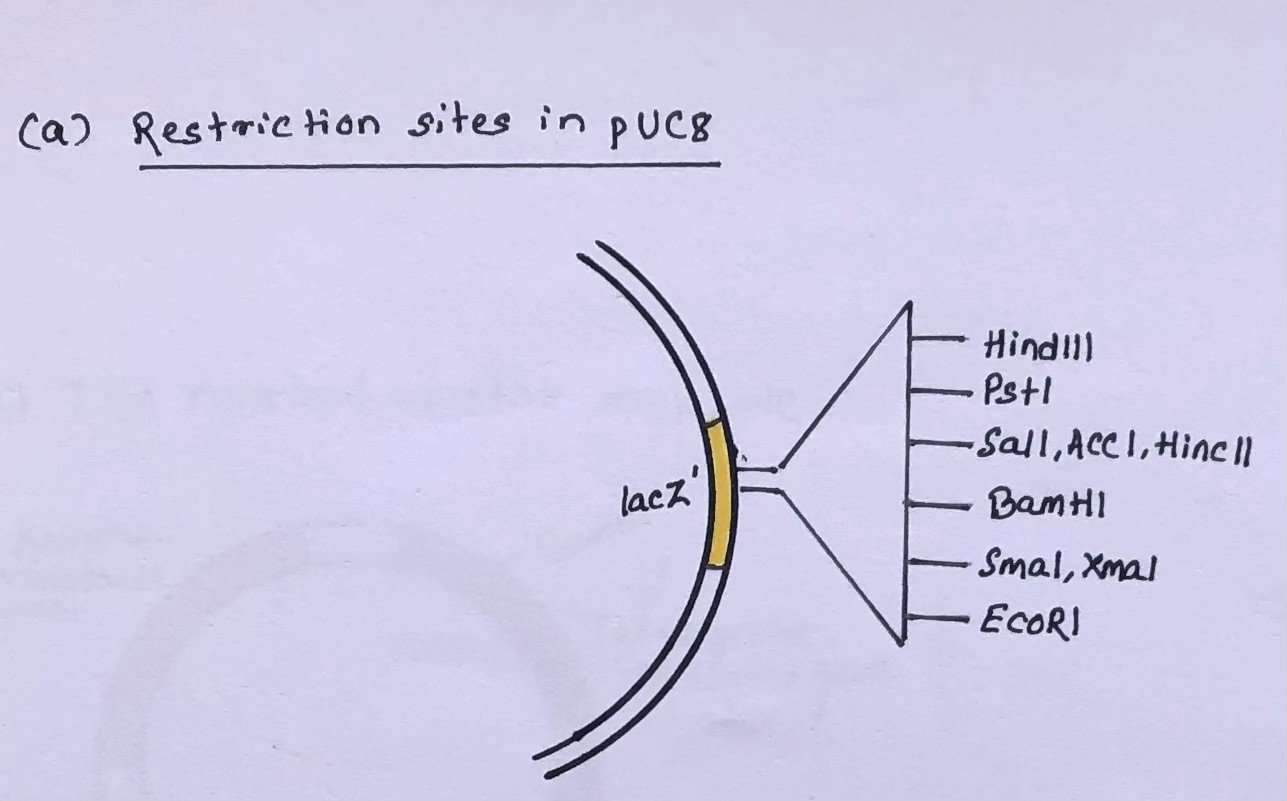 (a) Restriction sites in pUC8
HindIII
PstI
SalI, AccI, HincII
lacZ'
BamHI
SmaI, XmaI
EcoRI